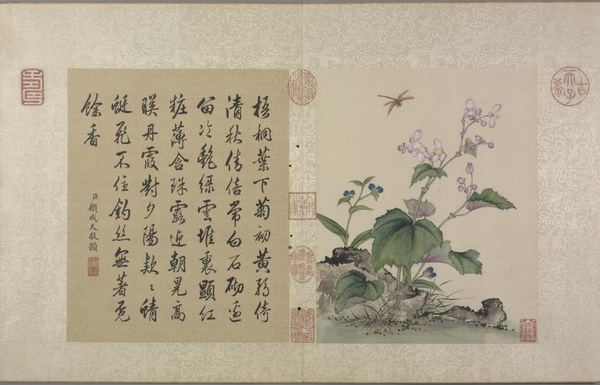 梧桐葉下菊初黃弱倚
清秋倩倩常白石砌邊
留冷艷綠雲堆裏顯紅
粧薄含珠露迎朝晃高
映丹霞對夕陽款款蜻
蜓飛不住釣絲無著覓
餘香
臣顧成天敬題